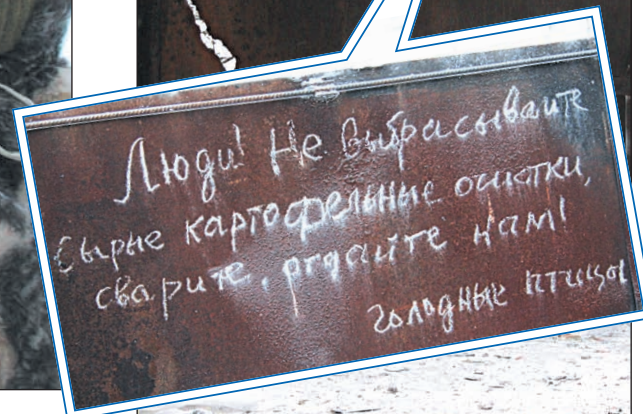 Люди! Не выбрасываите
сырые картофельные очистки,
сварите, отдайте нам!
голодные птицы